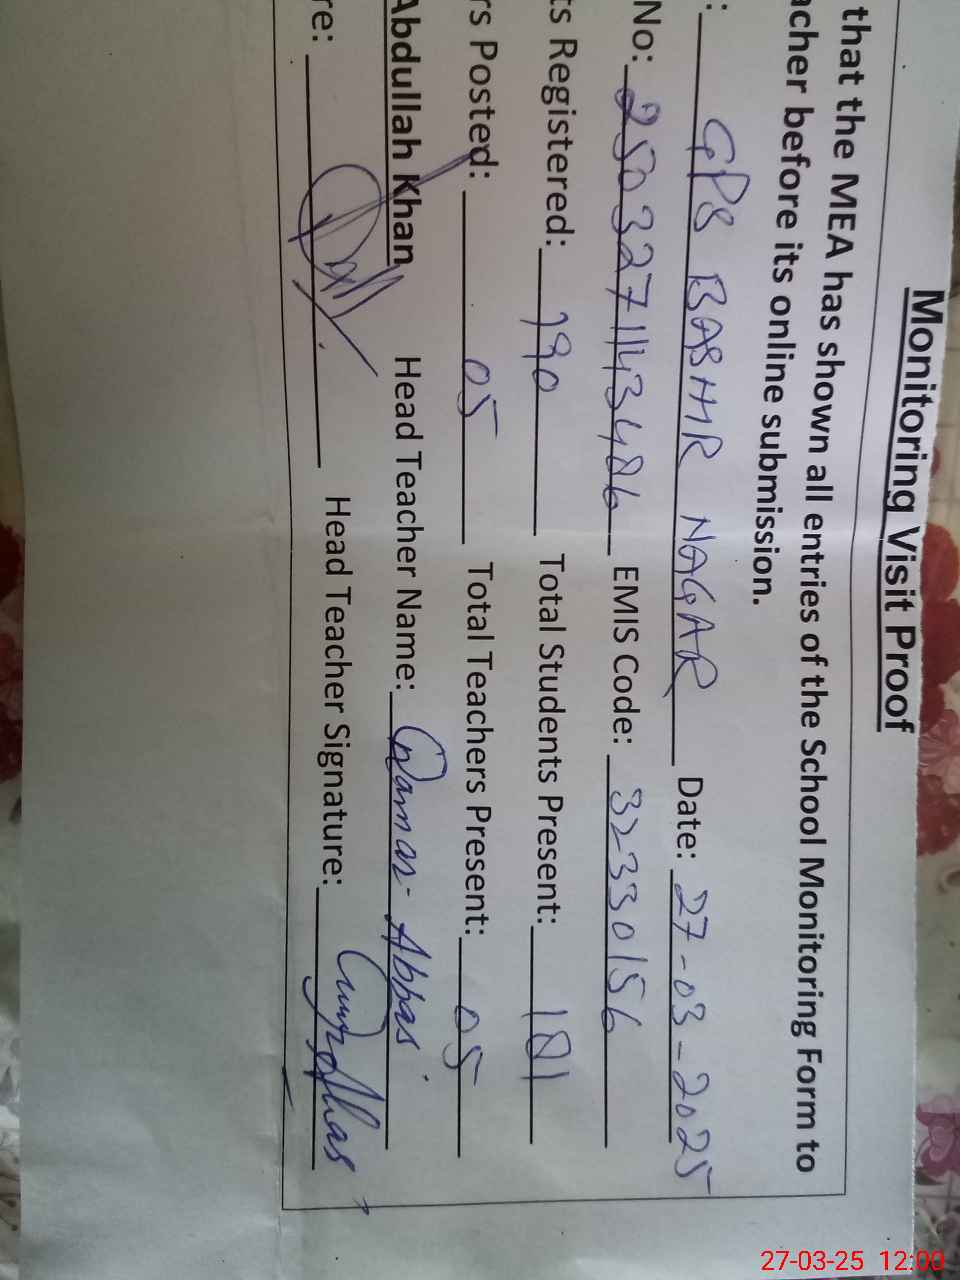 Monitoring Visit Proof
that the MEA has shown all entries of the School Monitoring Form to
acher before its online submission.
: GPS BASHIR NAGAR Date: 27-03-2025
No: 2503271143486 EMIS Code: 32330156
ts Registered: 190 Total Students Present: 181
rs Posted: 05 Total Teachers Present: 05
Abdullah Khan Head Teacher Name: Qamar Abbas
re: Head Teacher Signature:
27-03-25 12:00